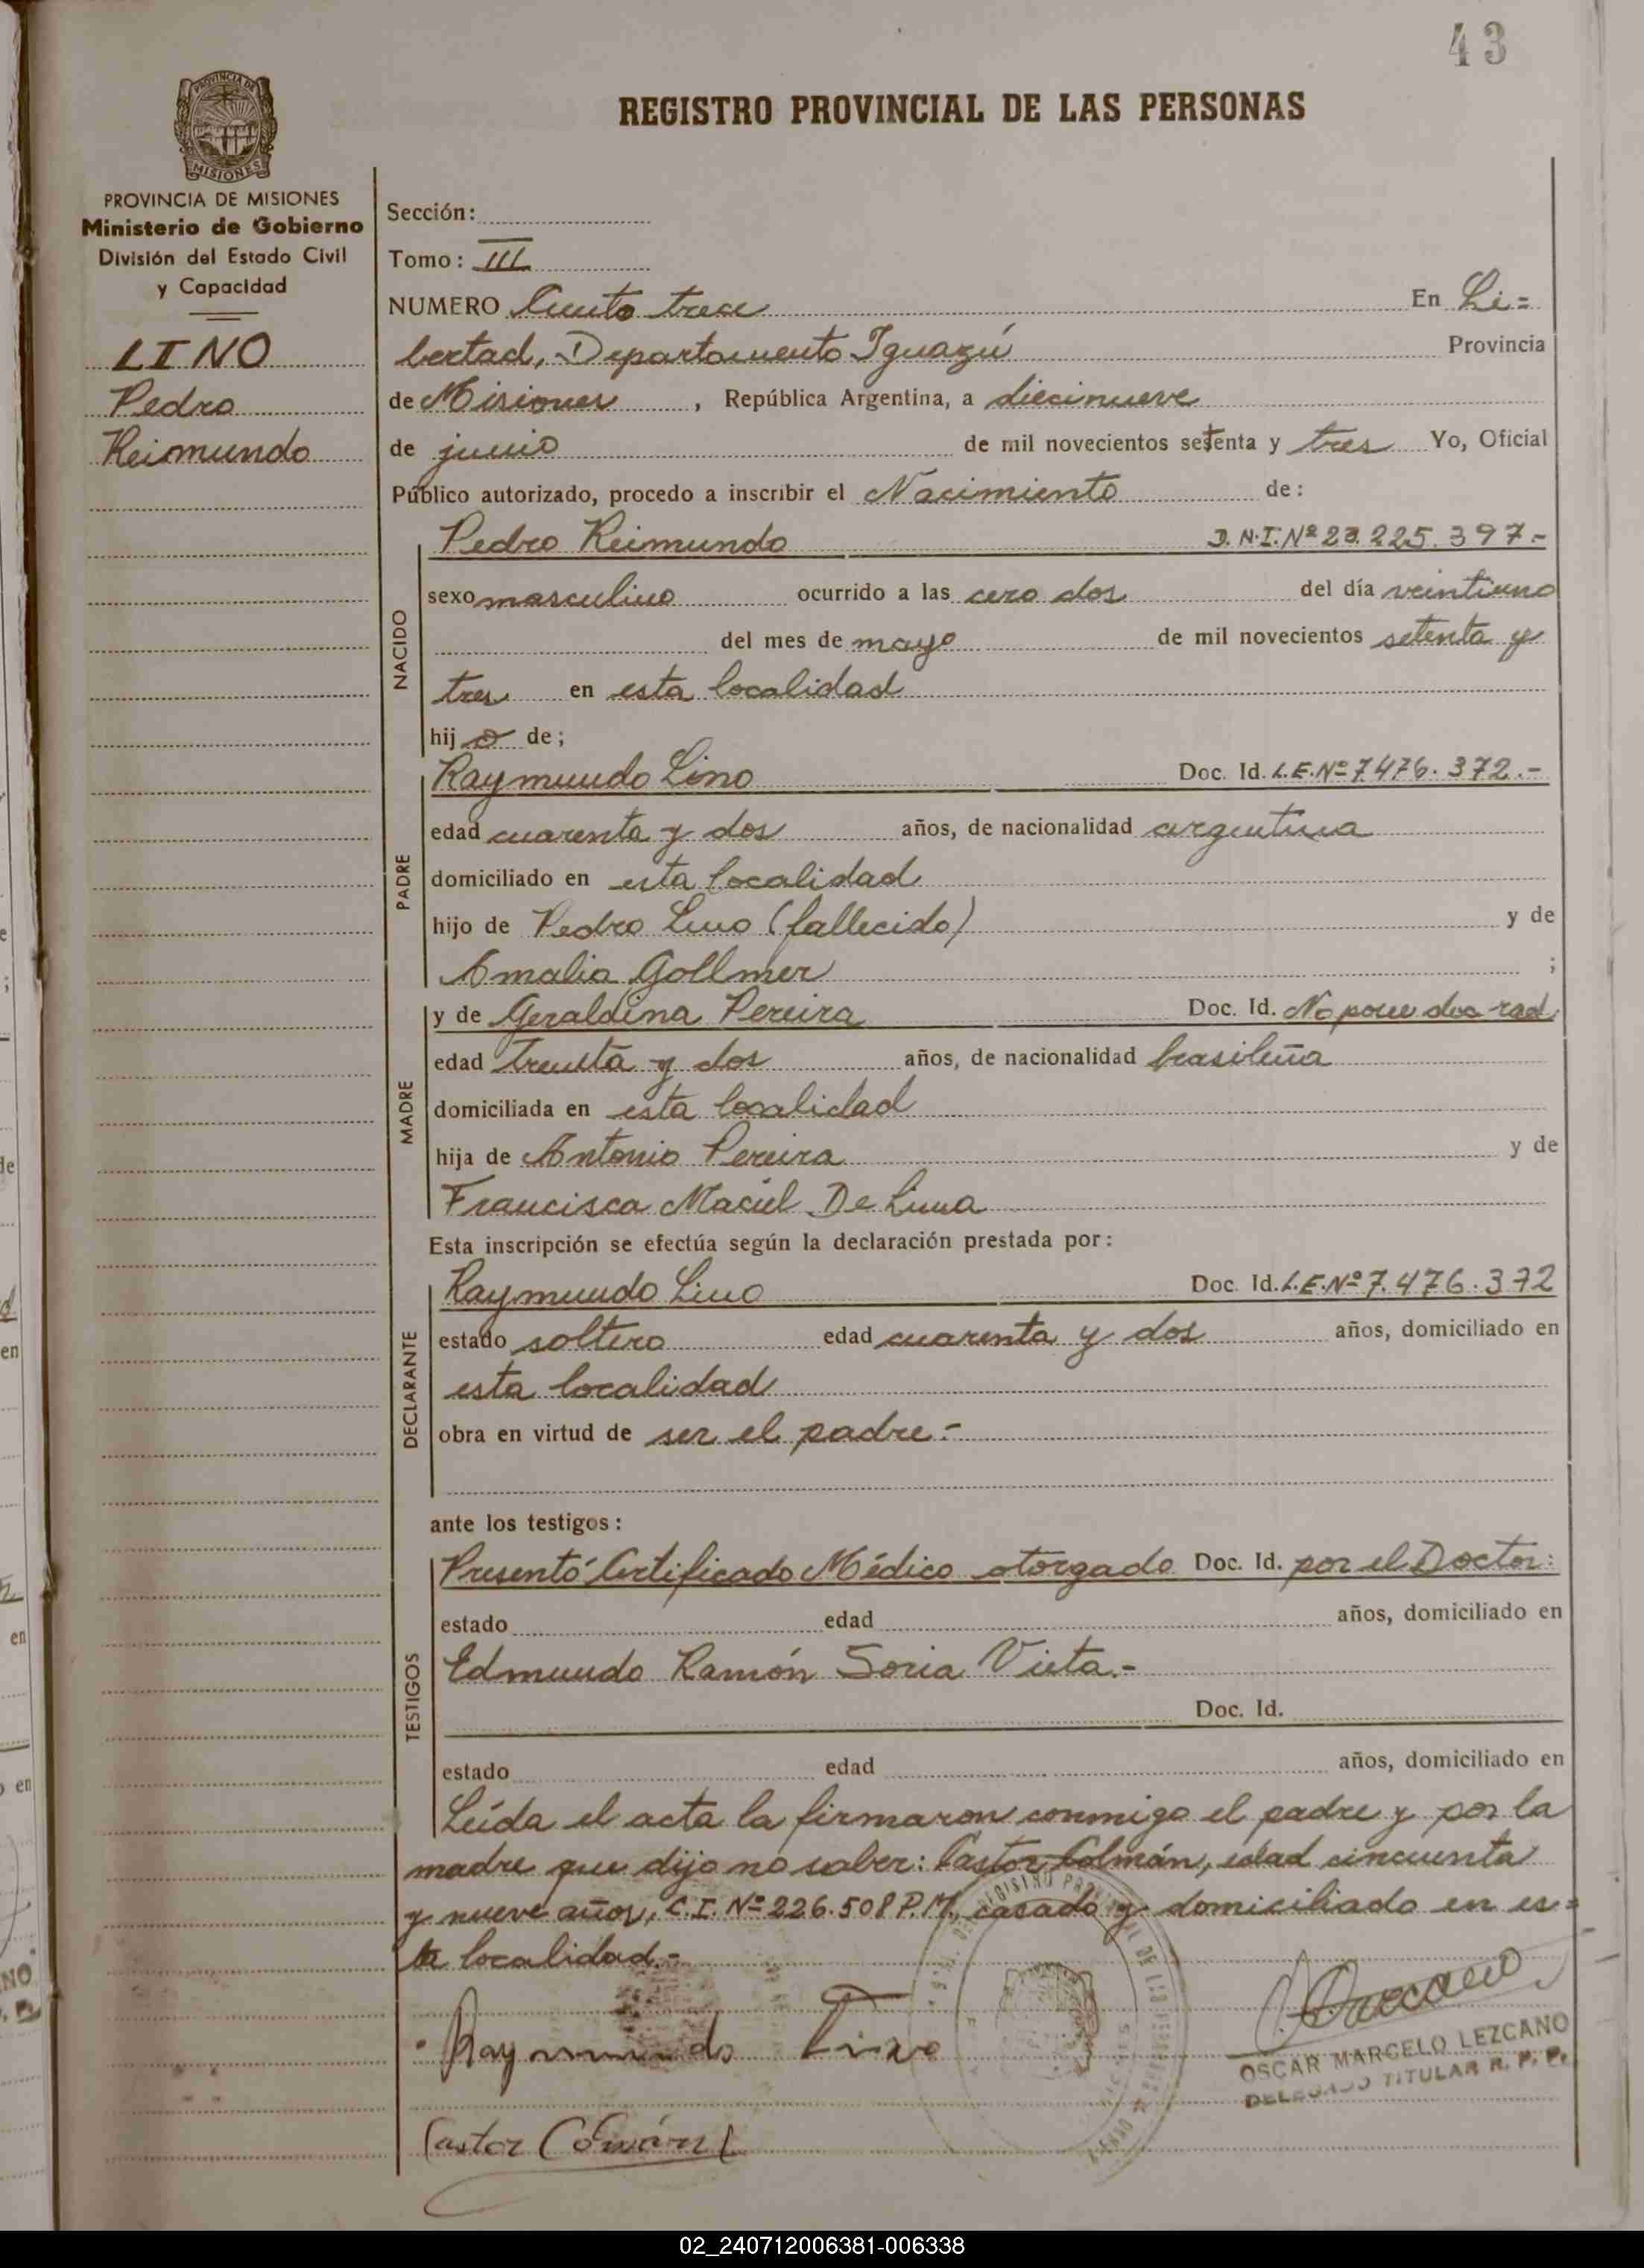 43
REGISTRO PROVINCIAL DE LAS PERSONAS
PROVINCIA DE MISIONES
PROVINCIA DE MISIONES
Ministerio de Gobierno
División del Estado Civil
y Capacidad
LINO
Pedro
Reimundo
Sección:
Tomo: III
NUMERO Ciento trece En Li=
bertad, Departamento Iguazú Provincia
de Misiones, República Argentina, a diecinueve
de junio de mil novecientos setenta y tres Yo, Oficial
Público autorizado, procedo a inscribir el Nacimiento de:
NACIDO
Pedro Reimundo D.N.I.Nº 23.225.397.-
sexo masculino ocurrido a las cero dos del día veintiuno
del mes de mayo de mil novecientos setenta y
tres en esta localidad
hij o de;
PADRE
Raymundo Lino Doc. Id. L.E.Nº 7476.372.-
edad cuarenta y dos años, de nacionalidad argentina
domiciliado en esta localidad
hijo de Pedro Lino (fallecido) y de
Amalia Gollmer ;
MADRE
y de Geraldina Pereira Doc. Id. No posee doc rad.
edad treinta y dos años, de nacionalidad brasileña
domiciliada en esta localidad
hija de Antonio Pereira y de
Francisca Maciel De Lima
Esta inscripción se efectúa según la declaración prestada por:
DECLARANTE
Raymundo Lino Doc. Id. L.E.Nº 7.476.372
estado soltero edad cuarenta y dos años, domiciliado en
esta localidad
obra en virtud de ser el padre.-
ante los testigos:
TESTIGOS
Presentó Certificado Médico otorgado Doc. Id. por el Doctor:
estado edad años, domiciliado en
Edmundo Ramón Soria Vieta.-
Doc. Id.
estado edad años, domiciliado en
Leída el acta la firmaron conmigo el padre y por la
madre que dijo no saber: Castor Colmán, edad cincuenta
y nueve años, C.I. Nº 226.508 P.M., casado y domiciliado en es=
ta localidad.-
Raymundo Lino
OSCAR MARCELO LEZCANO
DELEGADO TITULAR R. P. P.
Castor Colmán
02_240712006381-006338